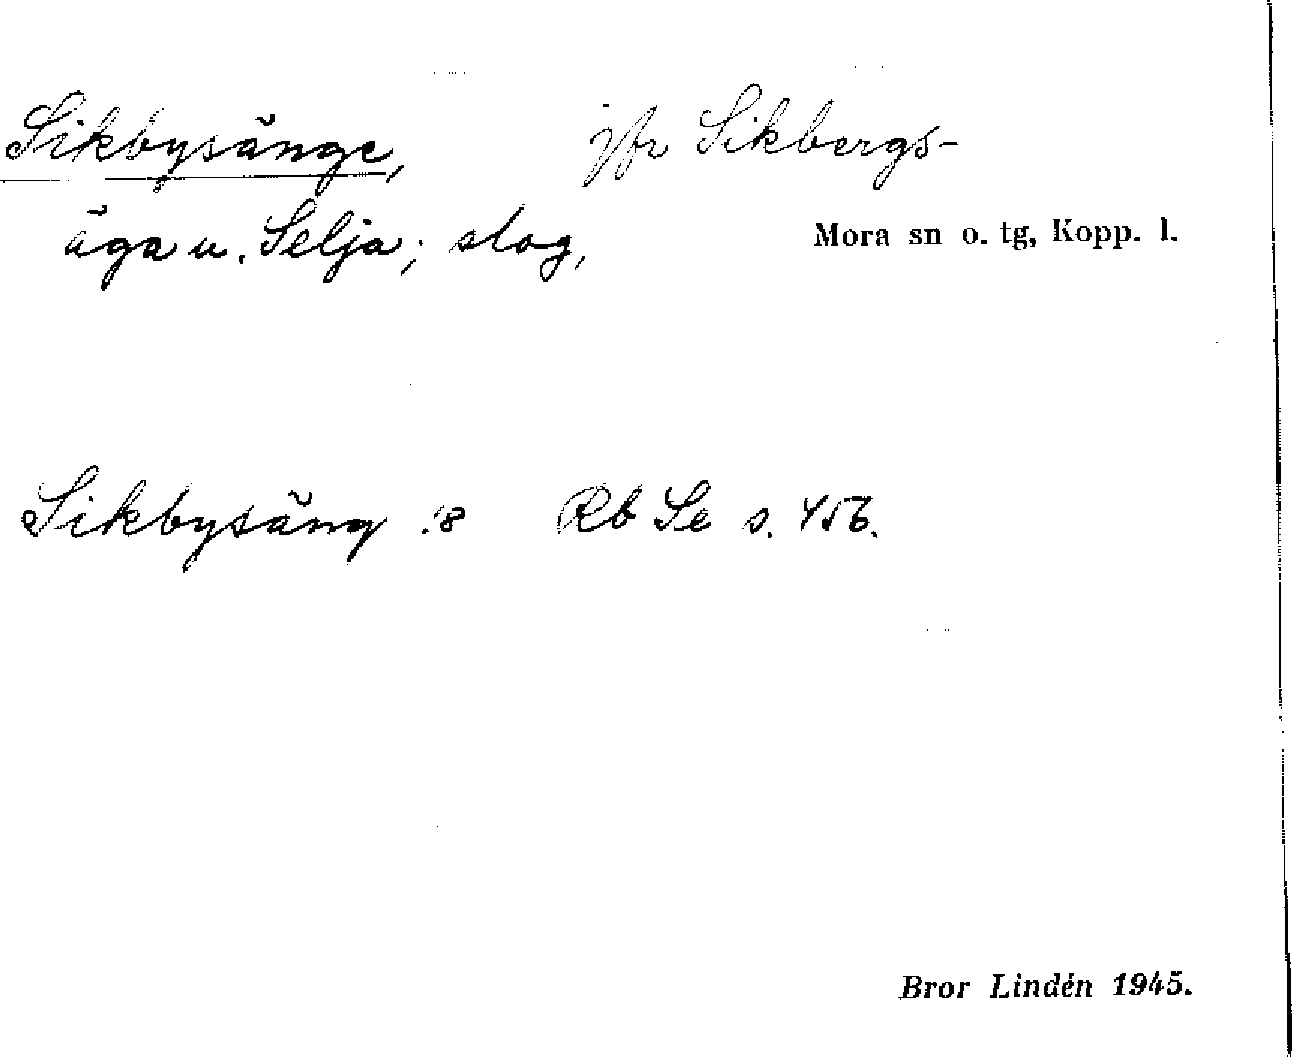 Sikbysänge, jfr Sikbergs-
äga u. Selja; slog,
Mora sn o. tg, Kopp. l.
Sikbysäng :8 Rb Se s. 456.
Bror Lindén 1945.